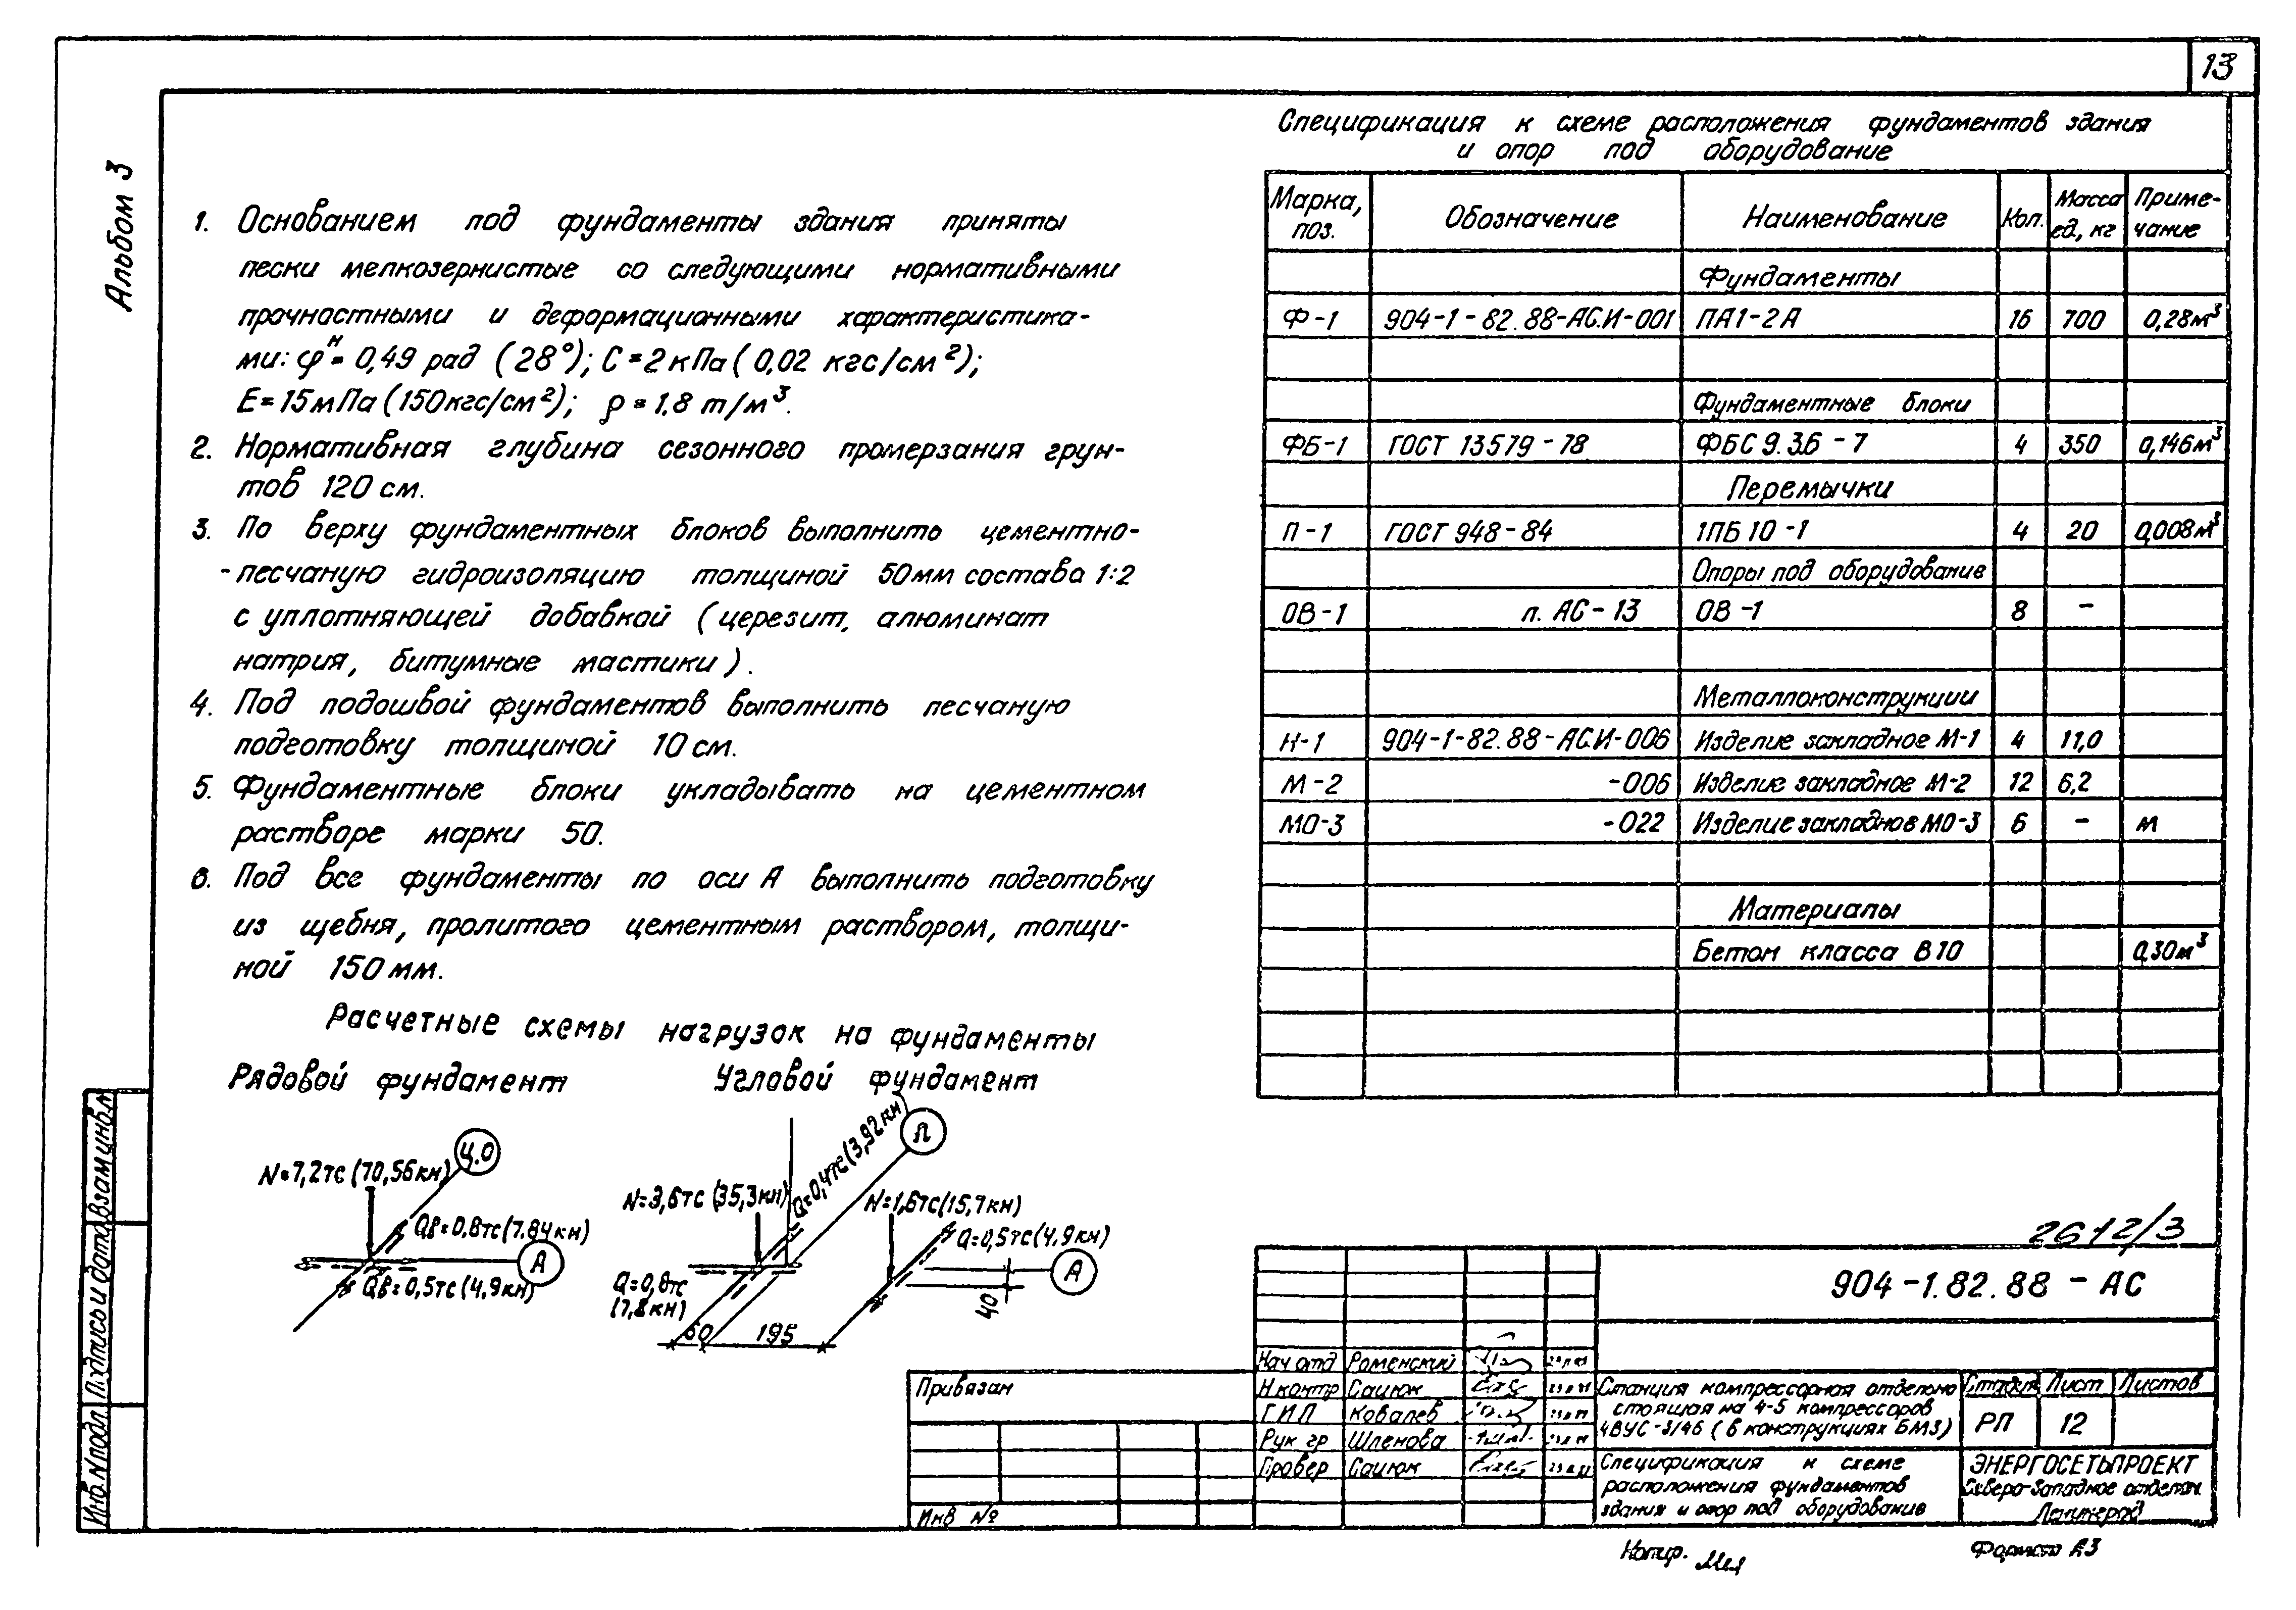 13
Альбом 3
1. Основанием под фундаменты здания приняты
пески мелкозернистые со следующими нормативными
прочностными и деформационными характеристика-
ми: φᴴ= 0,49 рад (28°); С=2кПа (0,02 кгс/см²);
Е=15мПа (150кгс/см²); ρ=1.8 т/м³.
2. Нормативная глубина сезонного промерзания грун-
тов 120 см.
3. По верху фундаментных блоков выполнить цементно-
-песчаную гидроизоляцию толщиной 50мм состава 1:2
с уплотняющей добавкой (церезит, алюминат
натрия, битумные мастики).
4. Под подошвой фундаментов выполнить песчаную
подготовку толщиной 10 см.
5. Фундаментные блоки укладывать на цементном
растворе марки 50.
6. Под все фундаменты по оси А выполнить подготовку
из щебня, пролитого цементным раствором, толщи-
ной 150 мм.
Расчетные схемы нагрузок на фундаменты
Рядовой фундамент Угловой фундамент
N=7,2тс (70,56кн)
Ц.О
Qв=0,8тс (7.84кн)
А
Qв=0,5тс (4,9кн)
N=3,6тс (35,3кн)
Q=0,4тс (3,92кн)
Л
N=1,6тс (15,7кн)
Q=0,5тс (4,9кн)
А
Q=0,8тс
(7,8кн)
60 195 40
Спецификация к схеме расположения фундаментов здания
и опор под оборудование
Марка, поз. Обозначение Наименование Кол. Масса ед, кг Приме-чание
Фундаменты
Ф-1 904-1-82.88-АС.И-001 ПА1-2А 16 700 0,28м³
Фундаментные блоки
ФБ-1 ГОСТ 13579-78 ФБС 9.3.6-7 4 350 0,146м³
Перемычки
П-1 ГОСТ 948-84 1ПБ 10-1 4 20 0,008м³
Опоры под оборудование
ОВ-1 л. АС-13 ОВ-1 8 -
Металлоконструкции
Н-1 904-1-82.88-АС.И-006 Изделие закладное М-1 4 11,0
М-2 -006 Изделие закладное М-2 12 6,2
МО-3 -022 Изделие закладное МО-3 6 - м
Материалы
Бетон класса В10 0,30м³
2612/3
904-1.82.88-АС
Нач отд Роменский
Н.контр Сацюк
ГИП Ковалев
Рук гр Шленова
Провер Сацюк
Привязан
Инв №
Станция компрессорная отдельно
стоящая на 4-5 компрессоров
4ВУС-3/46 (в конструкциях БМЗ)
Стадия Лист Листов
РП 12
Спецификация к схеме
расположения фундаментов
здания и опор под оборудование
ЭНЕРГОСЕТЬПРОЕКТ
Северо-Западное отделен.
Ленинград
Копир.
Формат А3
Инв.№подл. Подпись и дата Взам.инв.№